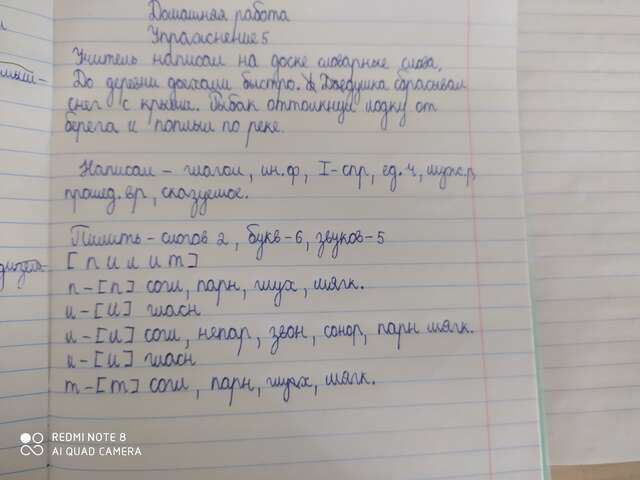 Домашняя работа
Упражнение 5
Учитель написал на доске словарные слова.
До деревни доехали быстро. Дедушка сбрасывал
снег с крыши. Рыбак оттолкнул лодку от
берега и поплыл по реке.
Написал - глагол, ин.ф, I-спр, ед.ч, муж.р,
прошед. вр, сказуемое.
Пилить - слогов 2, букв-6, звуков-5
[пилит]
п-[п] согл, парн, глух, мягк.
и-[и] гласн
л-[л] согл, непар, звон, сонор, парн мягк.
и-[и] гласн
т-[т] согл, парн, глух, мягк.
REDMI NOTE 8
AI QUAD CAMERA